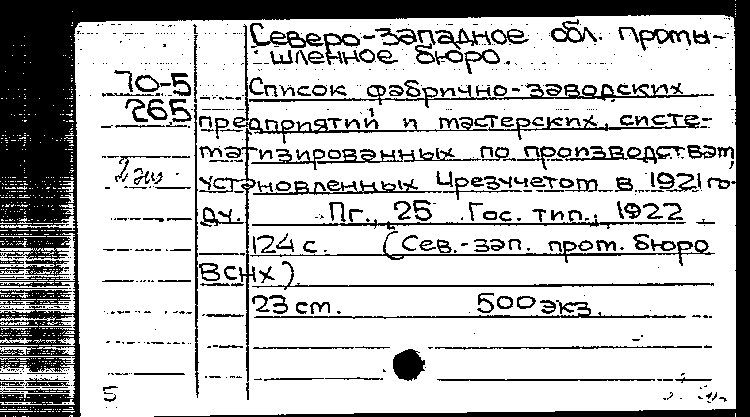 Северо-Западное обл. промы-
шленное бюро.
70-5
265
2 экз.
Список фабрично-заводских
предприятий и мастерских, систе-
матизированных по производствам,
установленных Чрезучетом в 1921 го-
ду. Пг., 25 Гос. тип., 1922.
124 с. (Сев.-зап. пром. бюро
ВСНХ).
23 см. 500 экз.
5